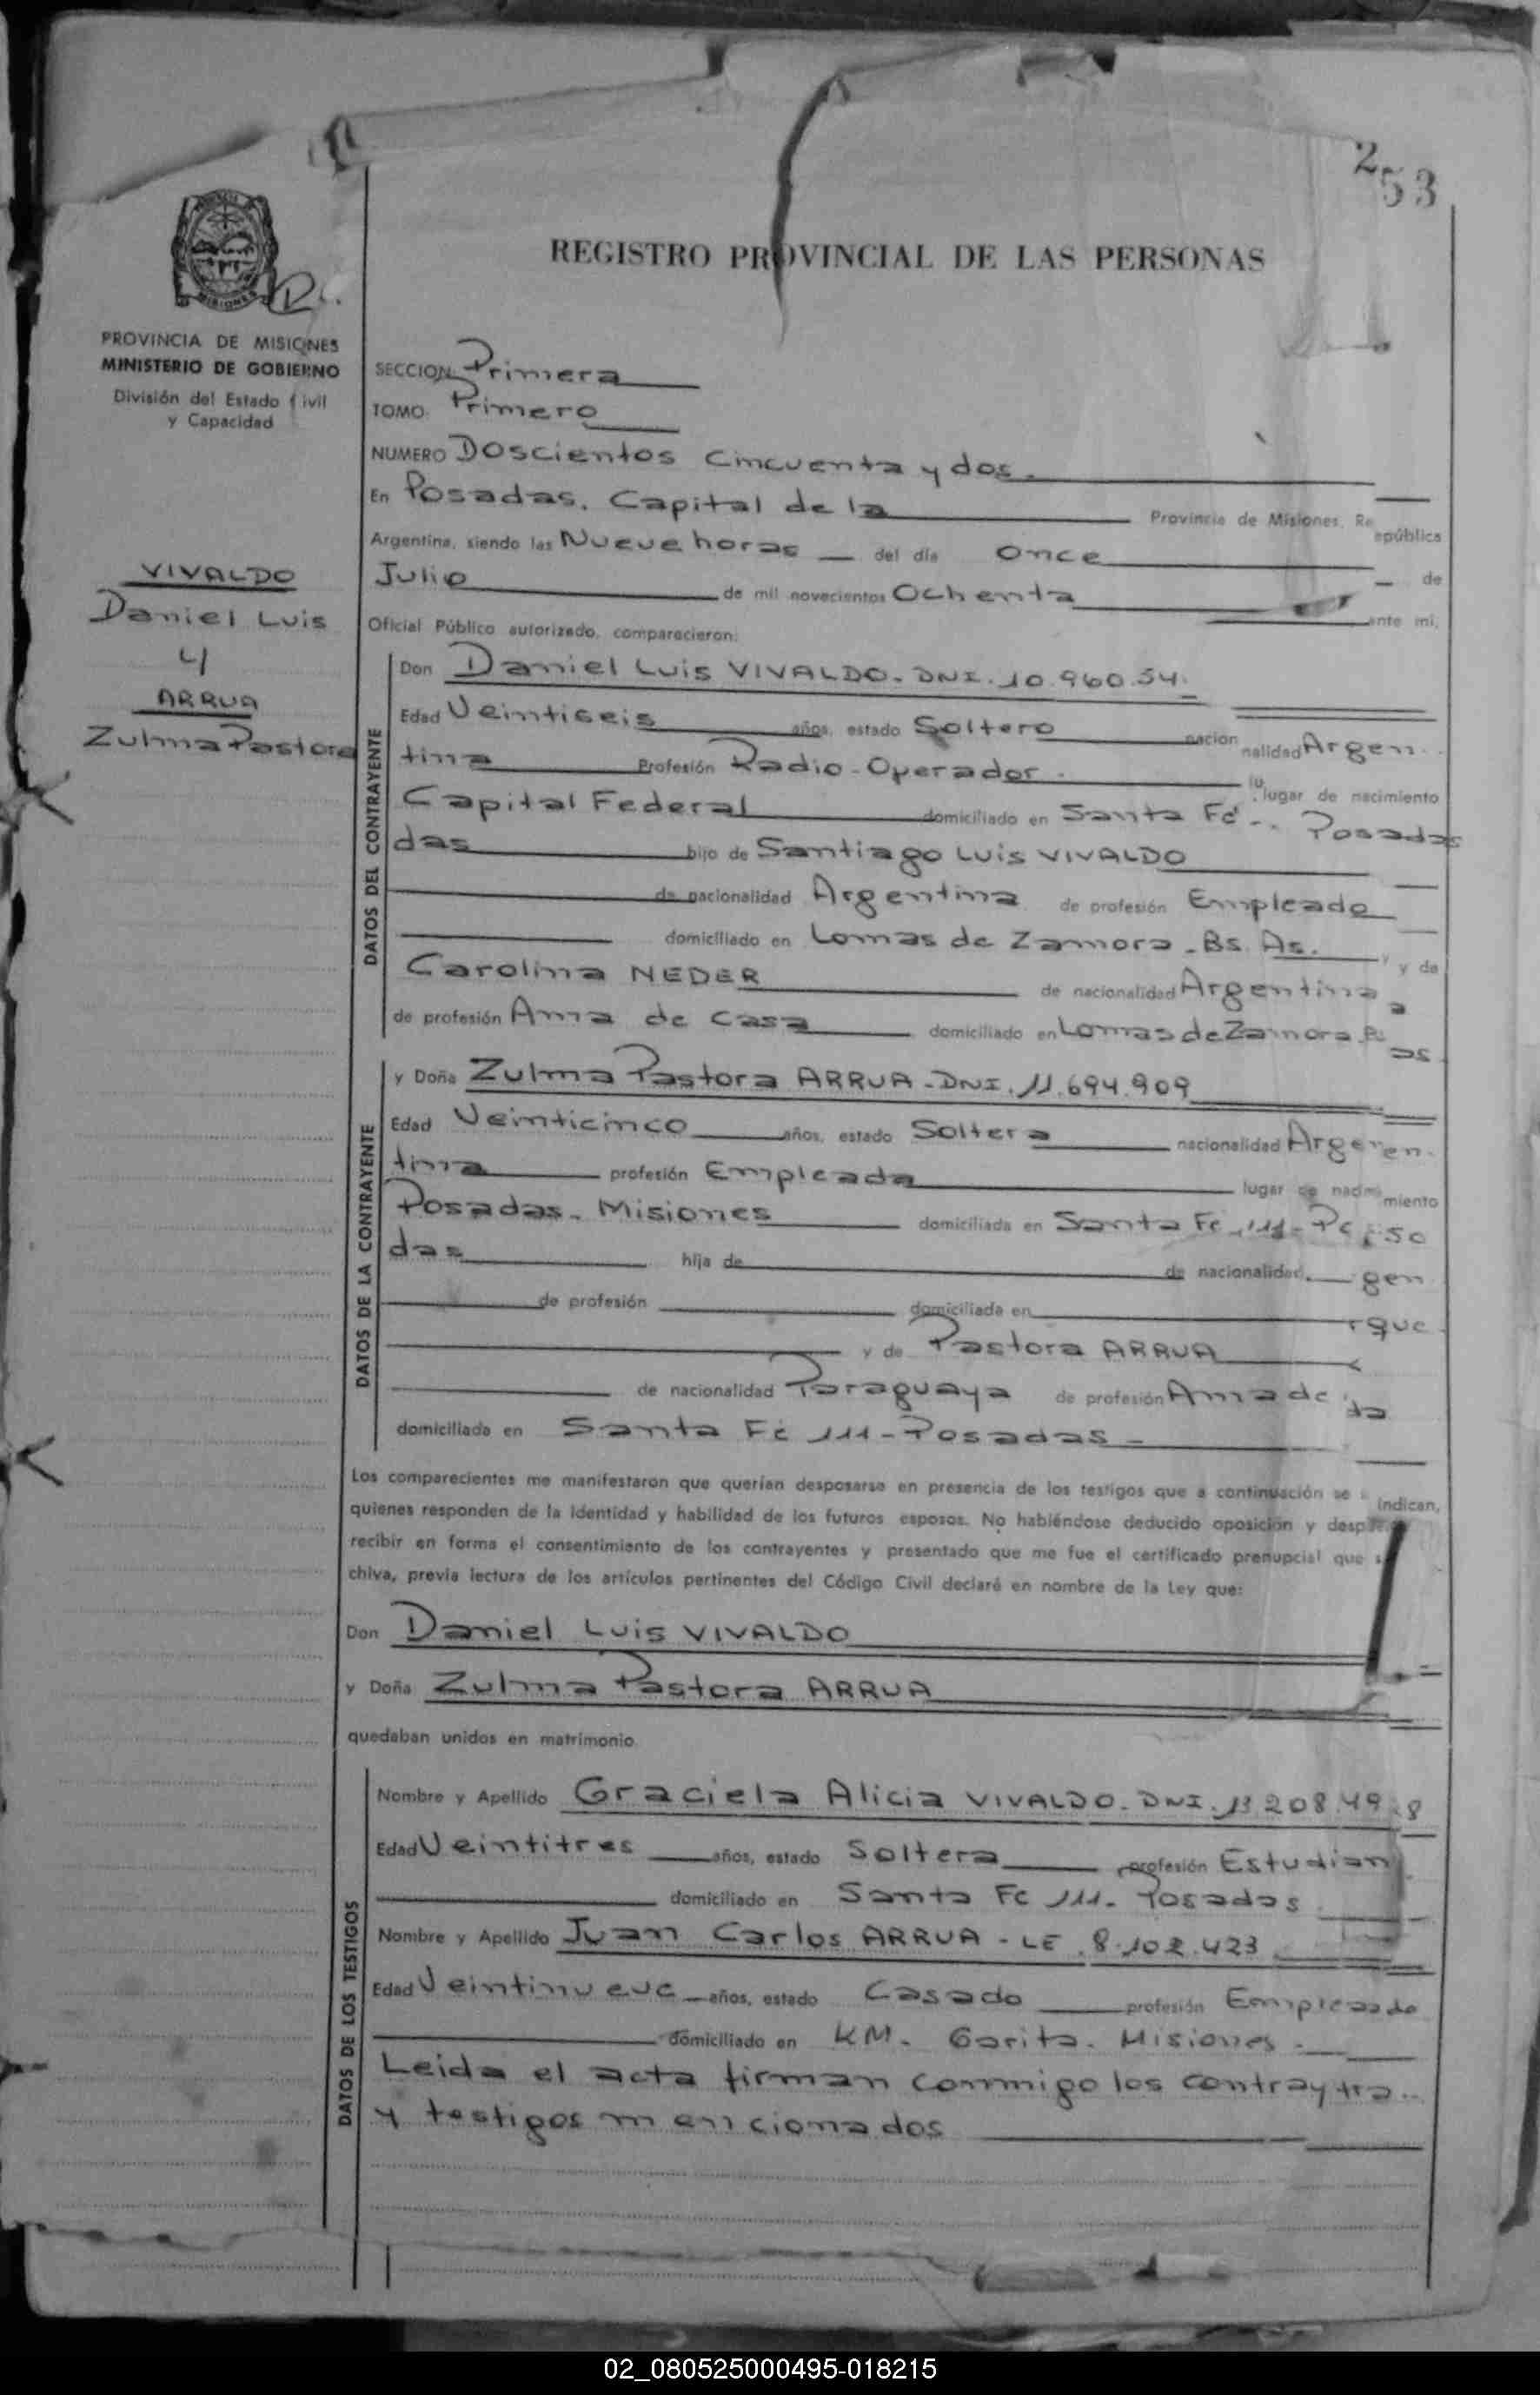 253
REGISTRO PROVINCIAL DE LAS PERSONAS
MISIONES
PROVINCIA DE MISIONES
MINISTERIO DE GOBIERNO
División del Estado Civil
y Capacidad
VIVALDO
Daniel Luis
y
ARRUA
Zulma Pastora
SECCION Primera
TOMO Primero
NUMERO Doscientos Cincuenta y dos.
En Posadas. Capital de la Provincia de Misiones, República
Argentina, siendo las Nueve horas del día Once de
Julio de mil novecientos Ochenta ante mí,
Oficial Público autorizado, comparecieron:
DATOS DEL CONTRAYENTE
Don Daniel Luis VIVALDO - DNI. 10.960.54
Edad Veintiseis años, estado Soltero nacionalidad Argen
tina Profesión Radio-Operador lugar de nacimiento
Capital Federal domiciliado en Santa Fé Posadas
das hijo de Santiago Luis VIVALDO
de nacionalidad Argentina de profesión Empleado
domiciliado en Lomas de Zamora - Bs. As. y de
Carolina NEDER de nacionalidad Argentina
de profesión Ama de casa domiciliado en Lomas de Zamora as
DATOS DE LA CONTRAYENTE
y Doña Zulma Pastora ARRUA - DNI. 11.694.909
Edad Veinticinco años, estado Soltera nacionalidad Argen
tina profesión Empleada lugar de nacimiento
Posadas - Misiones domiciliada en Santa Fe 111 -
das hija de de nacionalidad gen
de profesión domiciliada en que
y de Pastora ARRUA
de nacionalidad Paraguaya de profesión Ama de
domiciliada en Santa Fé 111 - Posadas -
Los comparecientes me manifestaron que querían desposarse en presencia de los testigos que a continuación se indican,
quienes responden de la identidad y habilidad de los futuros esposos. No habiéndose deducido oposición y
recibir en forma el consentimiento de los contrayentes y presentado que me fue el certificado prenupcial que
chiva, previa lectura de los artículos pertinentes del Código Civil declaré en nombre de la Ley que:
Don Daniel Luis VIVALDO
y Doña Zulma Pastora ARRUA
quedaban unidos en matrimonio
DATOS DE LOS TESTIGOS
Nombre y Apellido Graciela Alicia VIVALDO - DNI. 13.208.49 8
Edad Veintitres años, estado Soltera profesión Estudian
domiciliado en Santa Fe 111 - Posadas
Nombre y Apellido Juan Carlos ARRUA - LE. 8.102.423
Edad Veintinueve años, estado Casado profesión Empleado
domiciliado en KM - Garita - Misiones -
Leida el acta firman conmigo los
y testigos mencionados
02_080525000495-018215